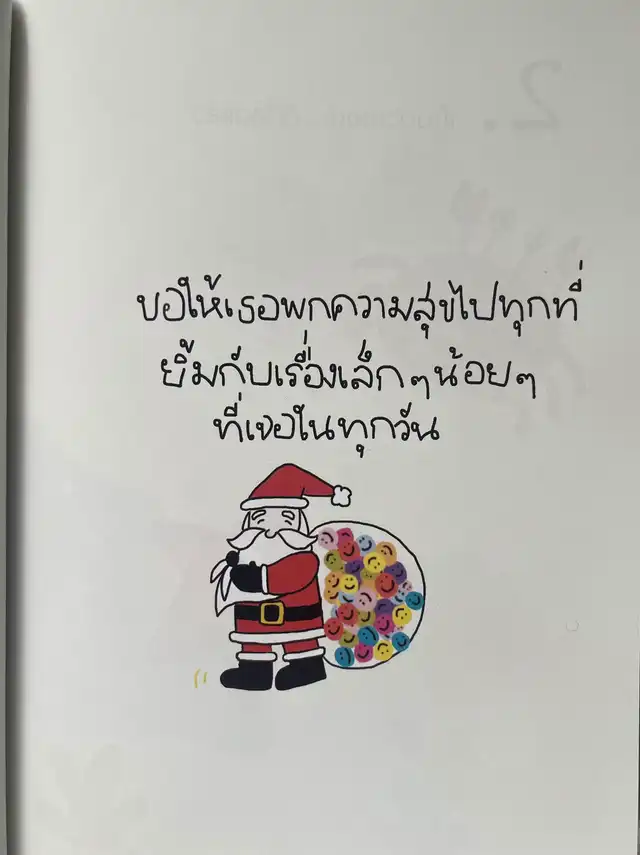 ขอให้เธอพกความสุขไปทุกที่
ยิ้มกับเรื่องเล็กๆน้อยๆ
ที่เจอในทุกวัน